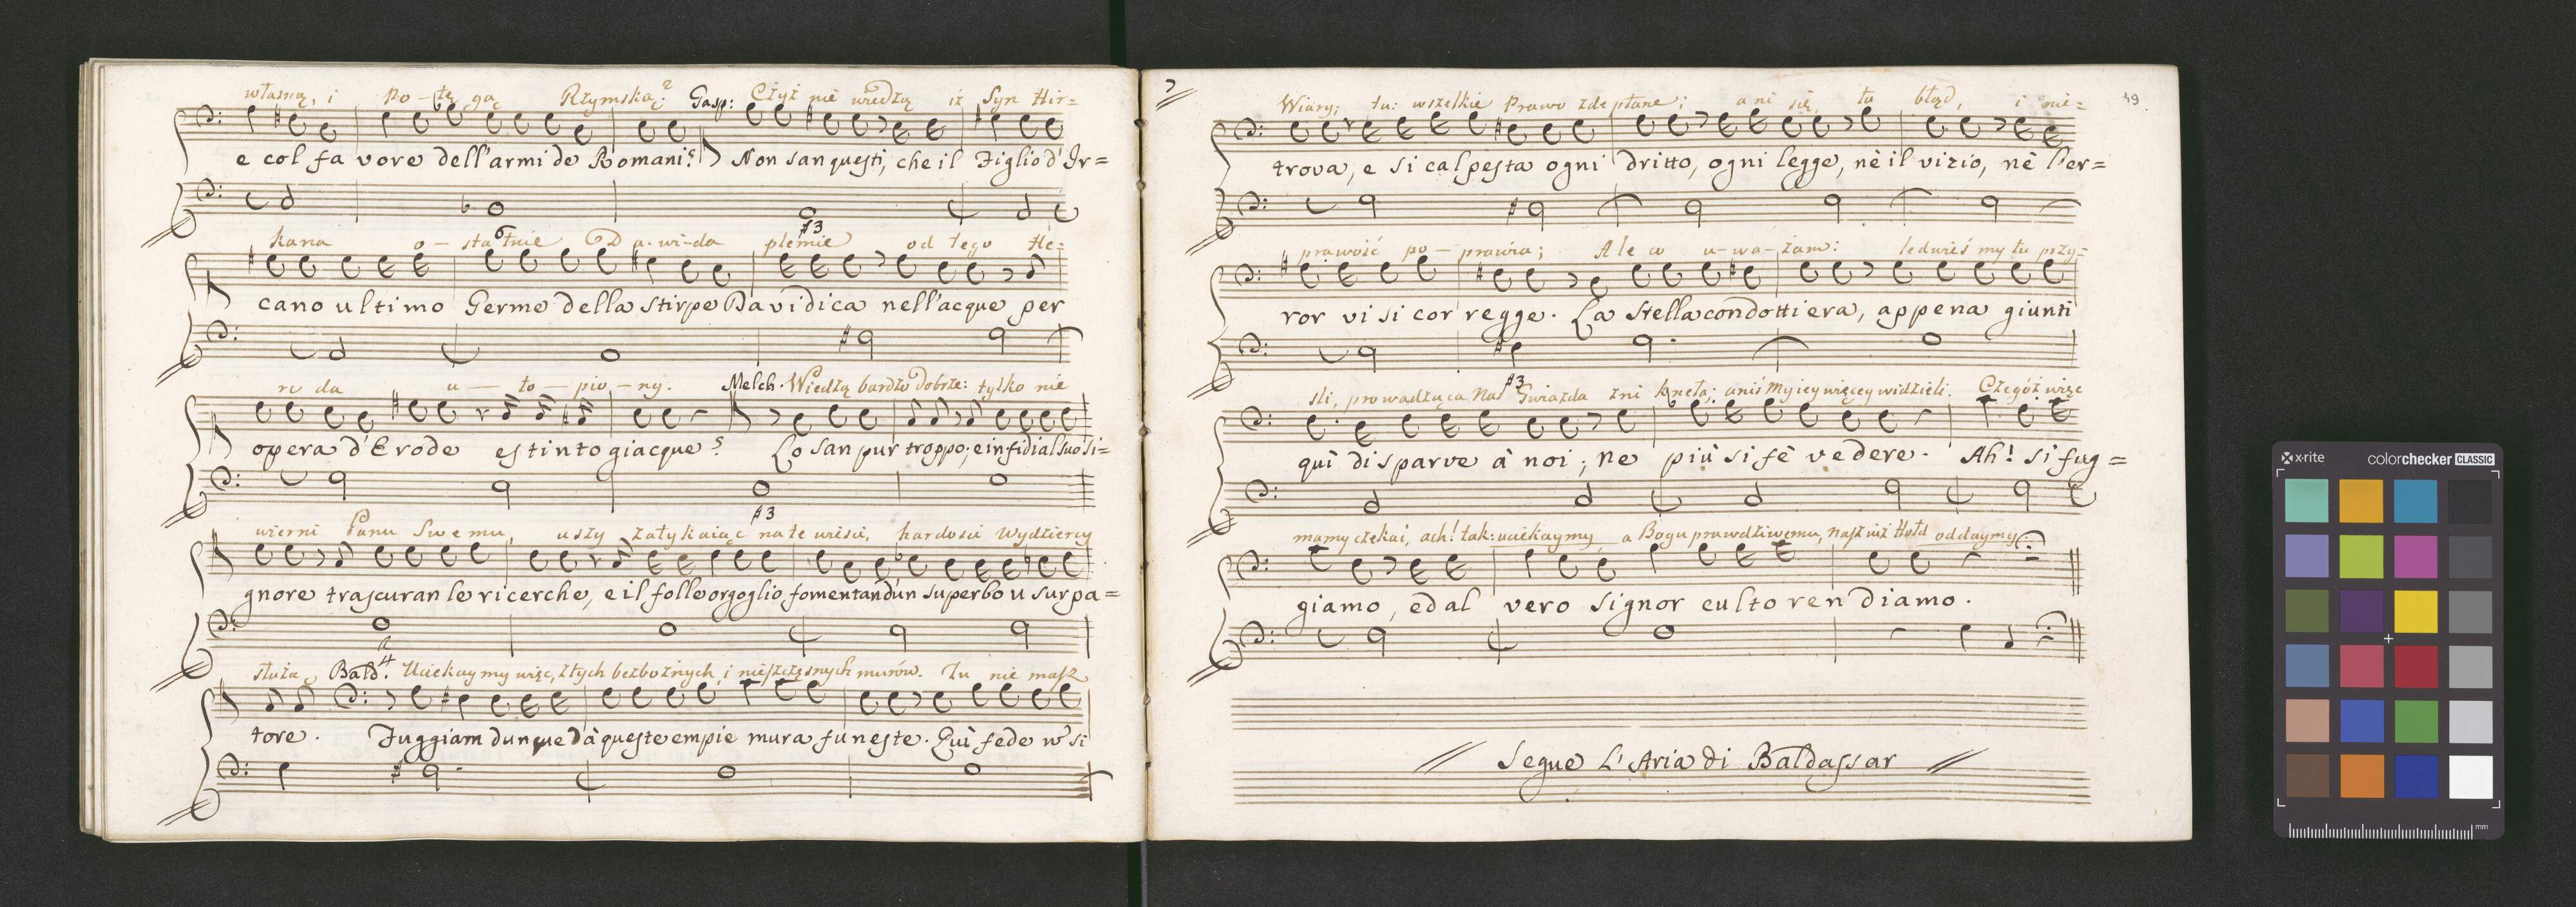 własną, i po-tę gą Rzymską? Gasp: Czyż nie wiedzą iż Syn Hir=
e col fa vore dell'armi de Romani? Non san questi, che il Figlio d'Ir=
kana o-statnie Da-wi-da plemie od tego He=
cano ultimo Germe della stirpe Davidica nell'acque per
ro da u-to-pio-ny. Melch. Wiedzą bardzo dobrze: tylko nie
opera d'Erode estinto giacque? Lo san pur troppo; e infidi al suo Si=
wierni Panu Swemu, uszy zatykaiąc na te wieści, hardości Wydziercy
gnore trascuran le ricerche, e il folle orgoglio fomentand'un superbo usurpa=
służą Bald. Uciekaymy więc, złych bezbożnych, i nieszczęsnych murów. Tu nie masz
tore. Fuggiam dunque dà queste empie mura funeste. Quì fede n' si
49.
Wiary; tu: wszelkie Prawo zdeptane; ani się, tu błąd, i nie=
trova, e si calpesta ogni dritto, ogni legge, nè il vizio, nè l'er=
prawość po-prawia; Ale w u-wa-żam: ledwieś my tu przy=
ror vi si cor regge. La Stella condottiera, appena giunti
śli, prowadząca Nas Gwiazda zni knęła; aniś My iey więcey widzieli. Czegóż więc
quì disparve à noi; ne più si fè vedere. Ah! si fug=
mamy czekać, ach! tak: uciekaymy, a Bogu prawdziwemu, nasz iuż Hołd oddaymy.
giamo, ed al vero Signor culto ren diamo.
Segue L'Aria di Baldassar
x-rite colorchecker CLASSIC
mm